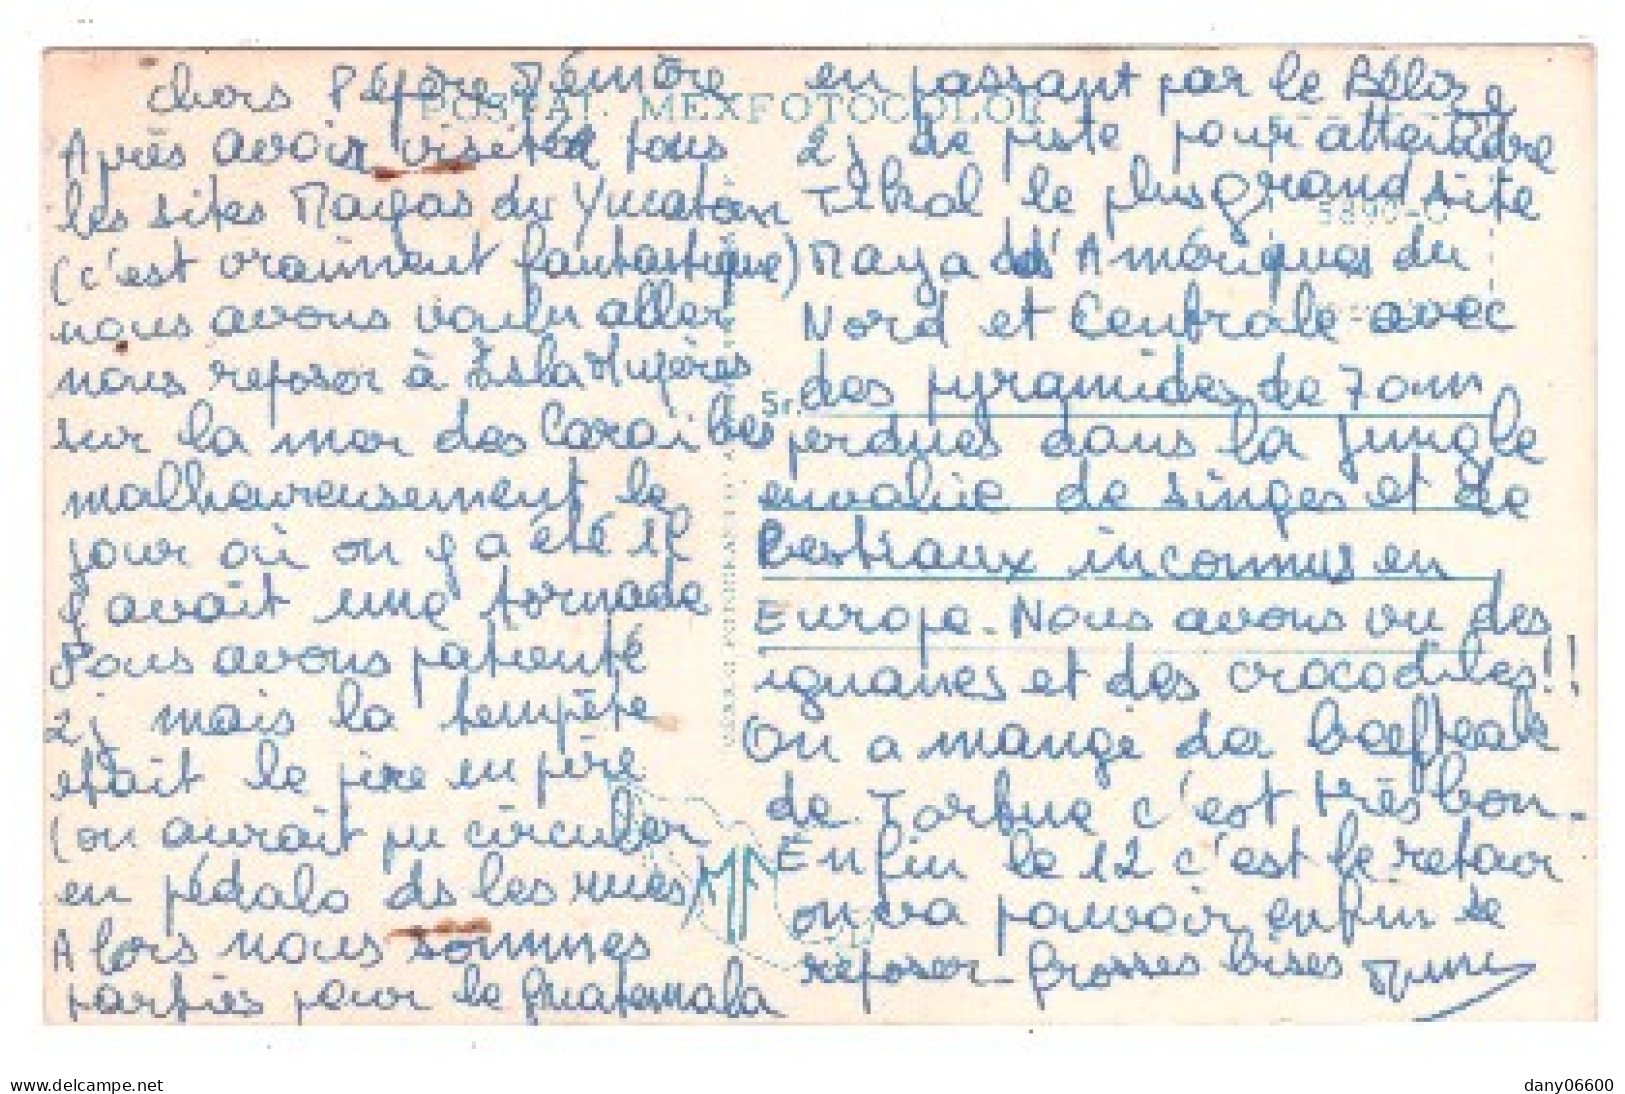 chers Pépère Mémère
Après avoir visitée tous
les sites Mayas du Yucatan
(c'est vraiment fantastique)
nous avons voulu aller
nous reposer à Isla Mujères
sur la mer des Caraïbes
malheureusement le
jour où on y a été il
y avait une tornade
Nous avons patienté
2j mais la tempête
était le pire en pire
(on aurait pu circuler
en pédalo ds les rues)
Alors nous sommes
parties pour le Guatemala
en passant par le Béliz
2j de piste pour atteindre
Tikal le plus grand site
Maya d'Amériques du
Nord et Centrale avec
des pyramides de 70m
perdues dans la jungle
envahie de singes et de
bestiaux inconnus en
Europe. Nous avons vu des
iguanes et des crocodiles!!
On a mangé du beefteak
de Tortue c'est très bon.
Enfin le 12 c'est le retour
on va pouvoir enfin se
reposer. Grosses bises
POSTAL MEXFOTOCOLOR
Sr.
MF
www.delcampe.net
dany06600